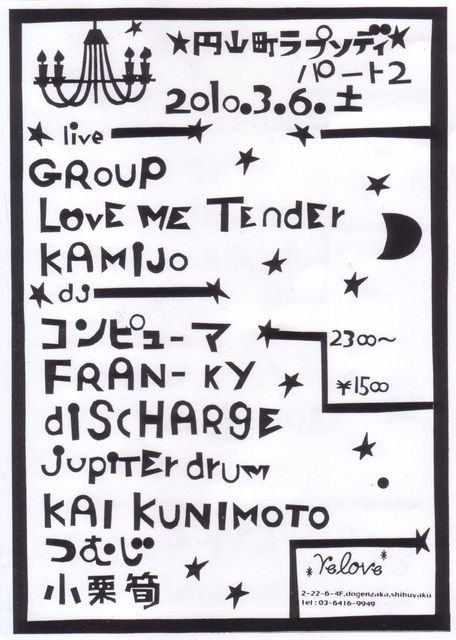 ★円山町ラプソディ★
パート2
2010.3.6.土
★ live
GROUP
LOVE ME TENDER
KAMIJO
★ dj
コンピューマ
FRAN-KY
dISCHARGE
JUPITER drum
KAI KUNIMOTO
つむじ
小栗筍
2300~
¥1500
*relove*
2-22-6-4F,dogenzaka,shibuyaku
tel:03-6416-9949